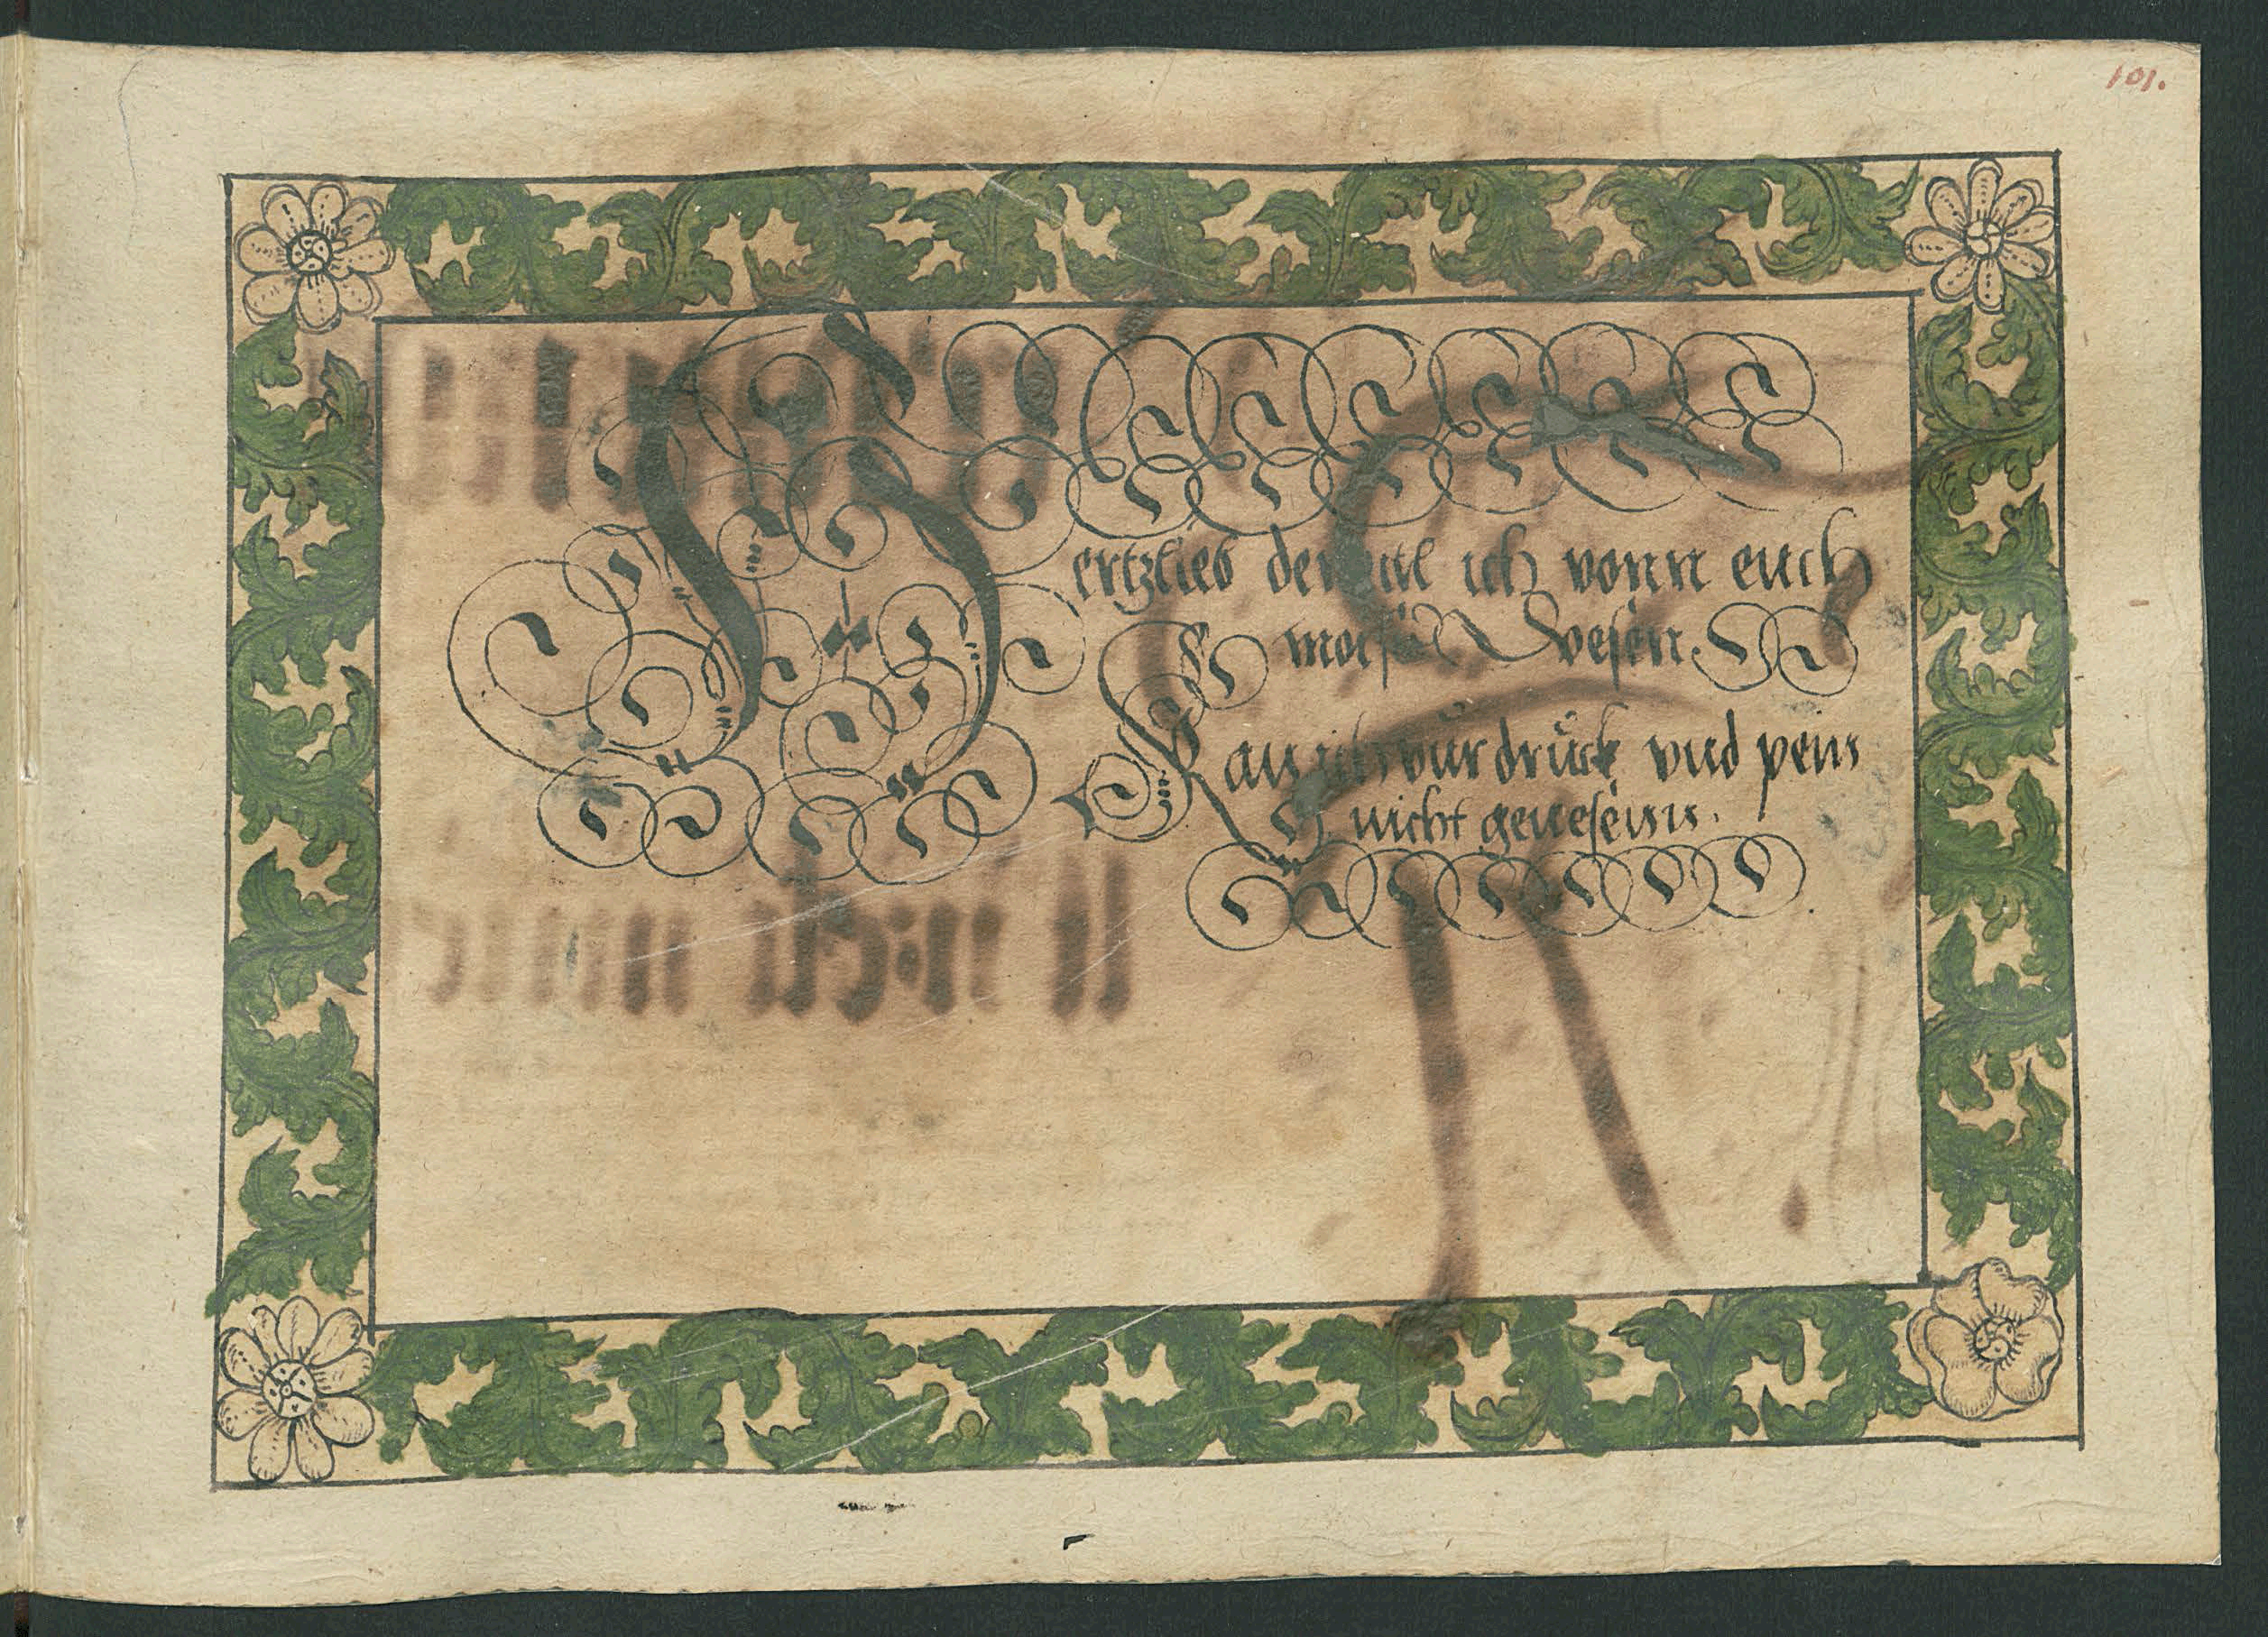 101.
Hertzlieb derweil ich vonn euch
mois Wesen
Kan ich vur druck vnd pein
nicht genesenn.